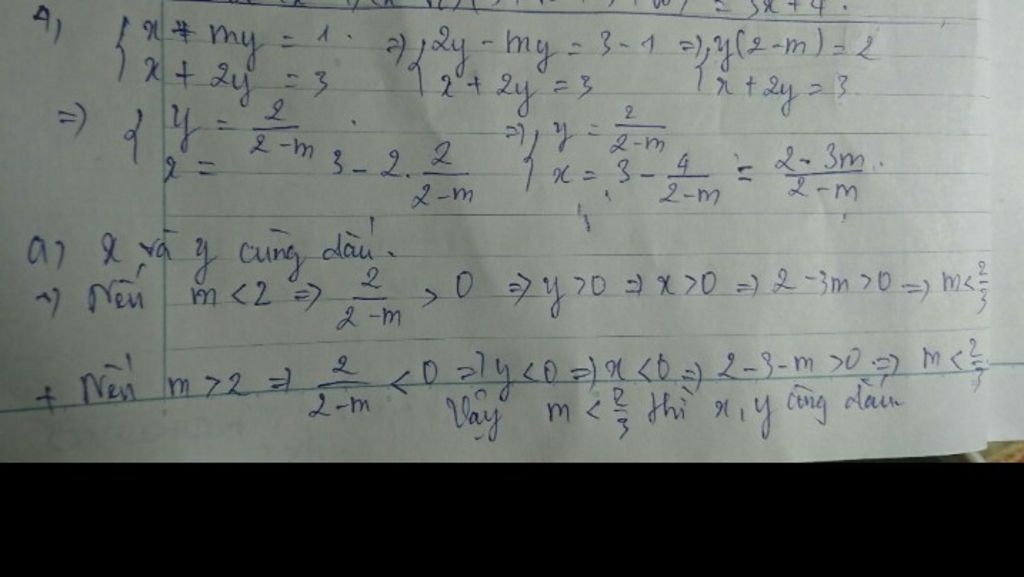 = 3x + 4.
4, { x + my = 1. => { 2y - my = 3 - 1 => { y(2-m) = 2
x + 2y = 3 x + 2y = 3 x + 2y = 3.
=> { y = 2/(2-m) . => { y = 2/(2-m)
x = 3 - 2. 2/(2-m) x = 3 - 4/(2-m) = (2-3m)/(2-m).
a, x và y cùng dấu.
~) Nếu m < 2 => 2/(2-m) > 0 => y > 0 => x > 0 => 2 - 3m > 0 => m < 2/3
+ Nếu m > 2 => 2/(2-m) < 0 => y < 0 => x < 0 => 2 - 3 - m > 0 => m < 2/3.
Vậy m < 2/3 thì x, y cùng dấu